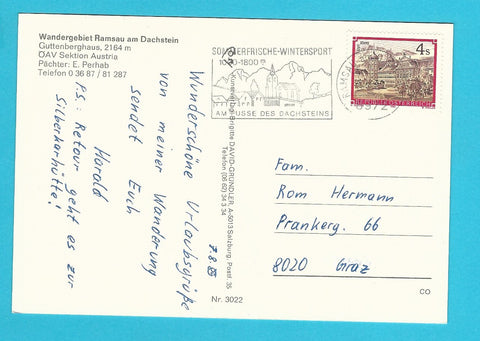 Wandergebiet Ramsau am Dachstein
Guttenberghaus, 2164 m
ÖAV Sektion Austria
Pächter: E. Perhab
Telefon 0 36 87 / 81 287
Wunderschöne Urlaubsgrüße
von meiner Wanderung
sendet Euch
Harold
P.S. Retour geht es zur
Silberkarhütte!
Brigitte DAVID-GRÜNDLER A-5013 Salzburg, Postf. 35
Telefon (06 62) 34 3 34
Nr. 3022
SOMMERFRISCHE-WINTERSPORT
AM FUSSE DES DACHSTEINS
4s
REPUBLIK ÖSTERREICH
Fam.
Rom Hermann
Prankerg. 66
8020 Graz
CO